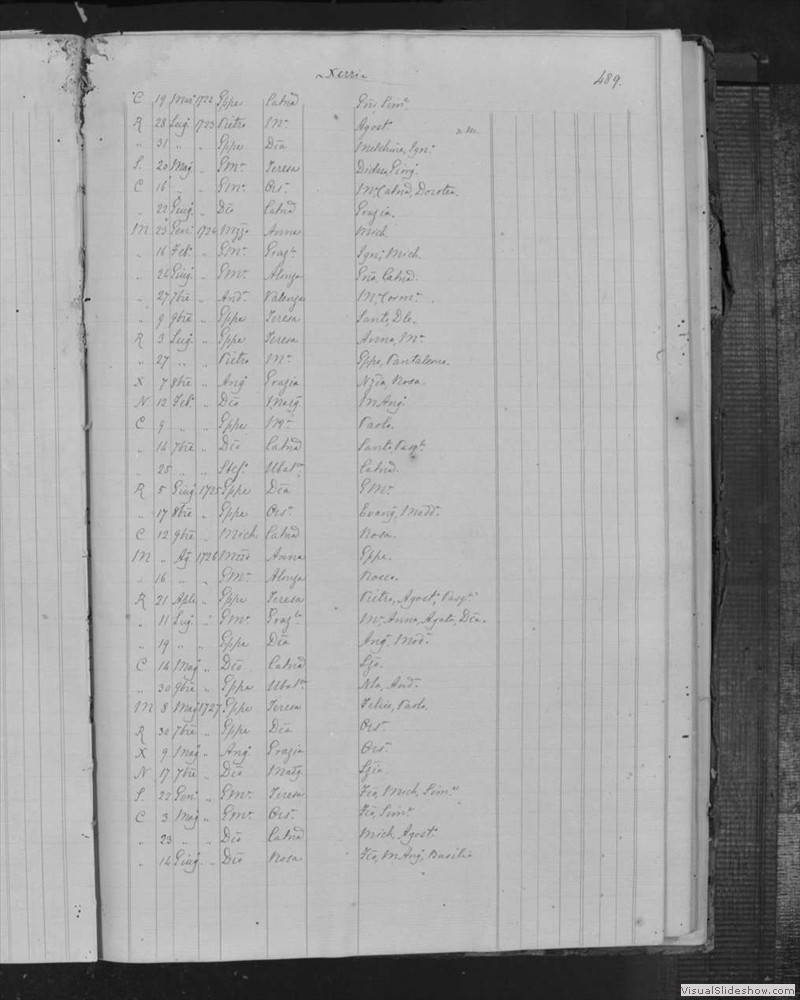 Xerri
489.
C 19 Mar 1722 Gppe Catnd Gio Sim.
R 28 Lug 1723 Pietro M. Agost.
„ 31 „ „ Gppe Dca Melchina, Ign.
S. 20 Mag „ GM. Teresa Giorg.
C 16 „ „ GM. Ors. M. Catnd, Dorotea.
„ 22 Giug „ Dco Catnd Grazia.
M 23 Gen. 1724 Anna Mich.
„ 16 Feb. „ GM. Graz. Ign, Mich.
„ 24 Giug. „ GM. Alonza Catnd.
„ 27 7bre „ And. Valenza
„ 9 9bre „ Gppe Teresa Sant,
R 3 Lug. „ Gppe Teresa Anna, M.
„ 27 „ „ Pietro M. Gppe, Pantaleone.
X 7 8bre „ Ang Grazia Rosa.
N 12 Feb. „ Dco Marg. M Ang
C 9 „ „ Gppe M. Paolo.
„ 14 7bre „ Dco Catnd Sant, Pasq.
„ 25 „ „ Stef. Ubal. Catnd.
R 5 Giug 1725 Gppe Dca GM.
„ 17 8bre „ Gppe Ors. Evang, Madd.
C 12 9bre „ Mich. Catnd Rosa.
M „ Ag. 1726 Anna Gppe.
„ 16 „ „ GM. Alonza Rocco.
R 21 Aple „ Gppe Teresa Pietro, Agost, Pasq.
„ 11 Lug. „ GM. Graz. M. Anna, Agata, Dca.
„ 19 „ „ Gppe Dca Ang,
C 14 Mag „ Dco Catnd
„ 30 9bre „ Gppe Ubal. And.
M 8 Mag 1727 Gppe Teresa Felice, Paolo.
R 30 7bre „ Gppe Dca Ors.
X 9 Mag „ Ang Grazia Ors.
N 17 7bre „ Dco Marg.
S. 22 Gen. „ GM. Teresa Fco, Mich, Sim.
C 3 Mag „ GM. Ors. Fco, Sim.
„ 23 „ „ Dco Catnd Mich, Agost.
„ 14 Giug „ Dco Rosa Fco, M Ang, Basilio
VisualSlideshow.com